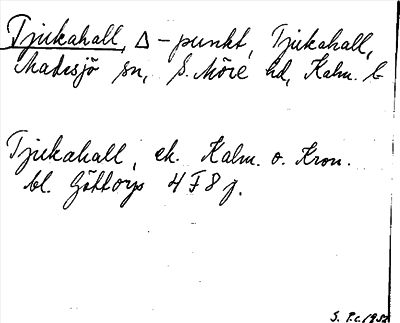 Tjukahall, Δ-punkt, Tjukahall,
Madesjö sn, S. Möre hd, Kalm. l.
Tjukahall, ek. Kalm. o. Kron.
bl. Göttorp 4 F 8 j.